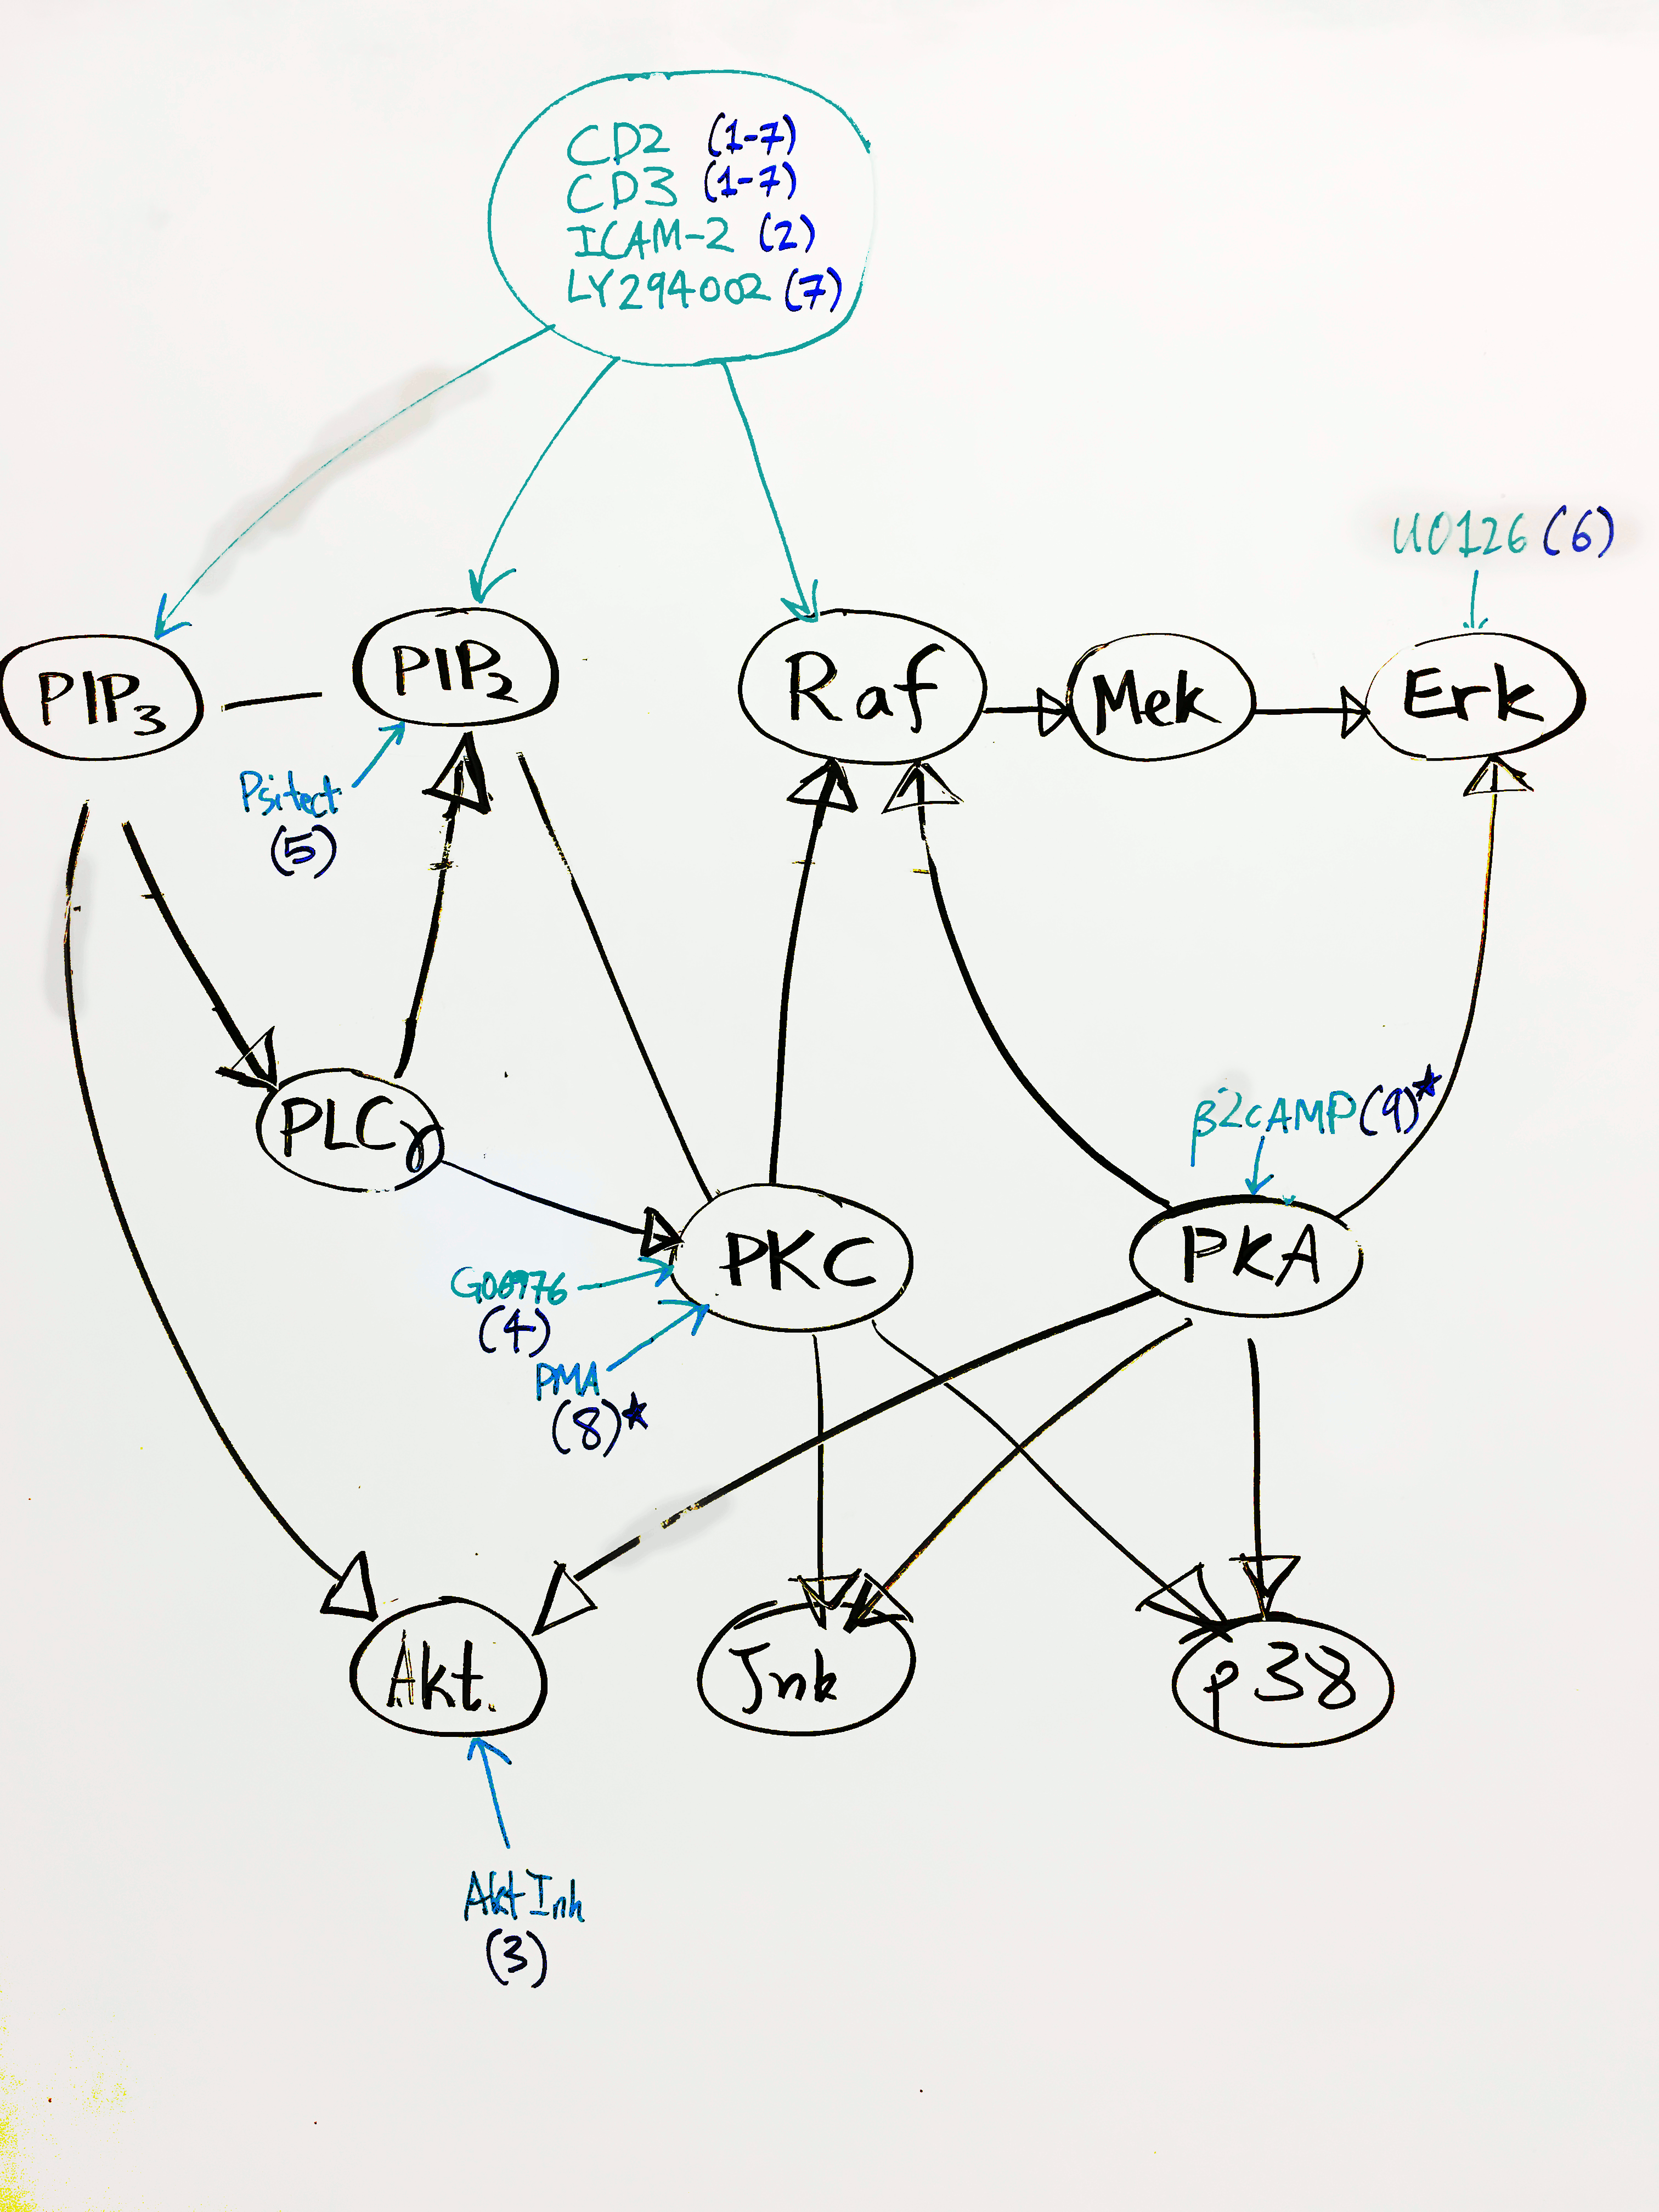 CD2 (1-7)
CD3 (1-7)
ICAM-2 (2)
LY294002 (7)
U0126 (6)
PIP3
PIP2
Raf
Mek
Erk
Psitect
(5)
PLCγ
β2cAMP (9)*
PKC
PKA
G06976
(4)
PMA
(8)*
Akt
Jnk
p38
Akt Inh
(3)